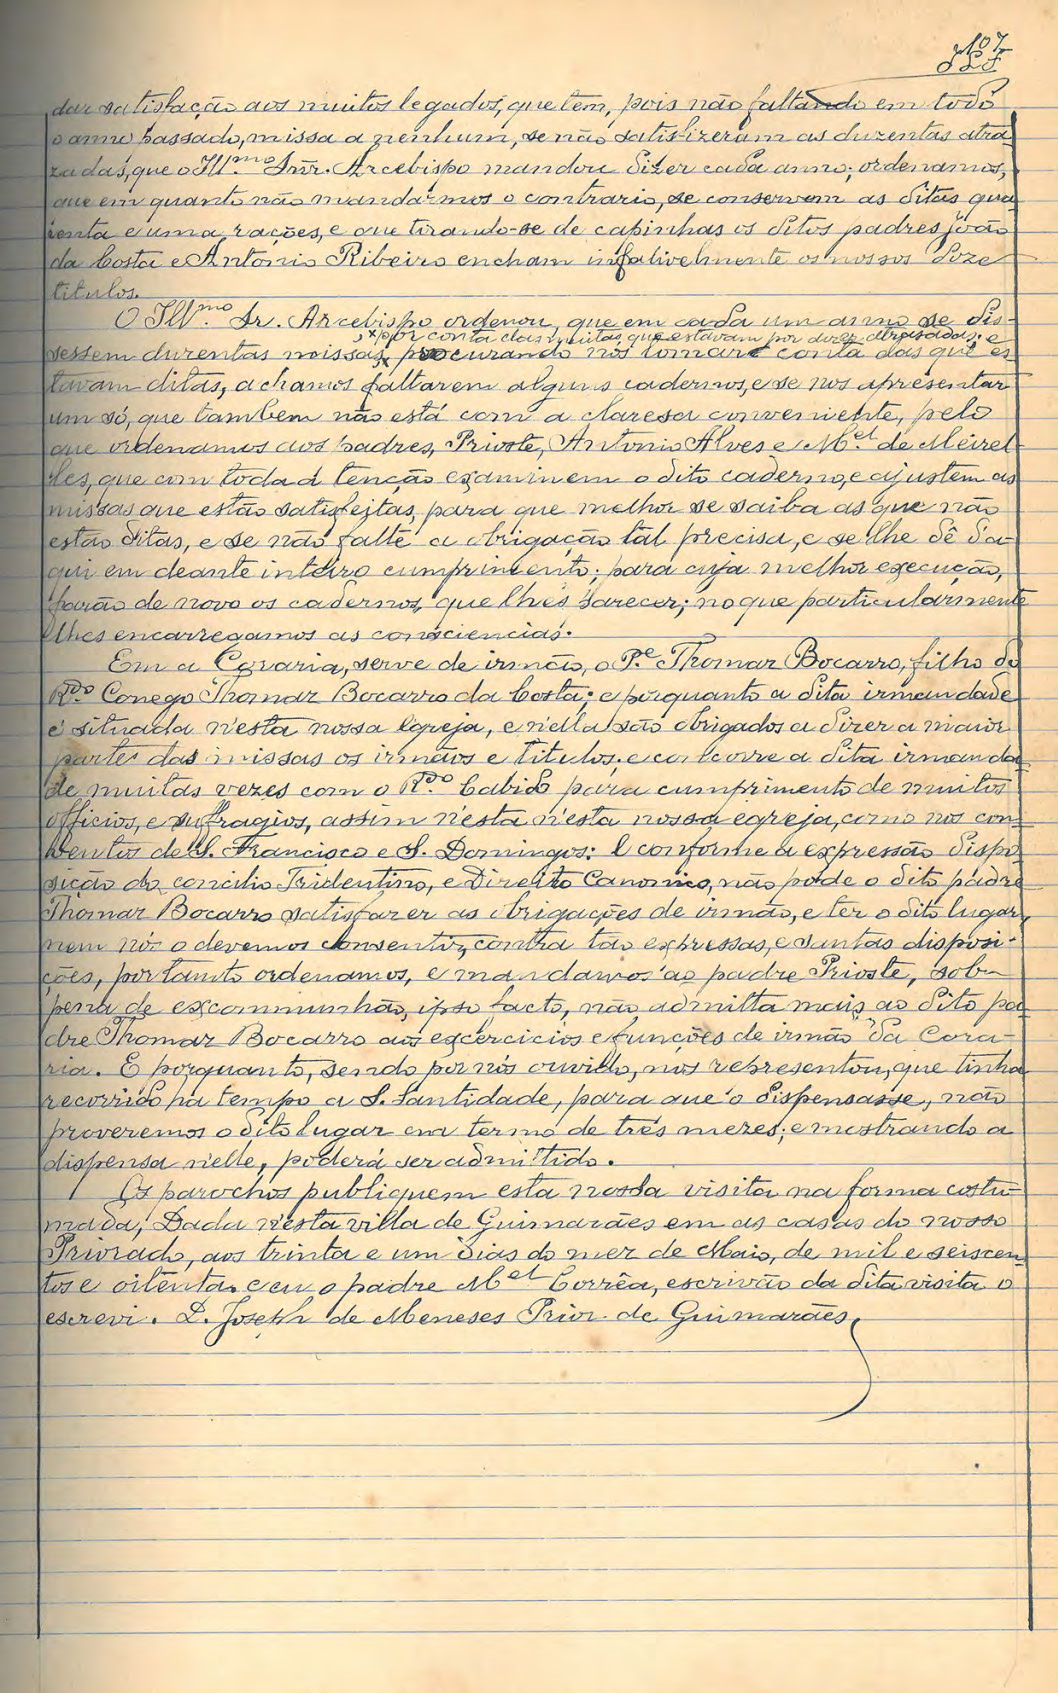 107
dar satisfação aos muitos legados, que tem, pois não faltando em todo
o anno passado, missa a nenhum, se não satisfizeram as duzentas atra-
zadas, que o Ill.mo Snr. Arcebispo mandou dizer cada anno; ordenamos,
que em quanto não mandarmos o contrario, se conservem as ditas qua-
renta e uma rações, e que tirando-se de capinhas os ditos padres João
da Costa e Antonio Ribeiro encham infalivelmente os nossos doze
titulos.
O Ill.mo Sr. Arcebispo ordenou, que em cada um anno se dis-
x por conta das muitas, que estavam por dizer, atrasadas; e
sessem duzentas missas, x procurando nós tomar conta das que es
tavam ditas, achamos faltarem alguns cadernos, e se nos apresentar
um só, que tambem não está com a claresa conveniente, pelo
que ordenamos aos padres, Prioste, Antonio Alves e M.el de Meirel-
les, que com toda a tenção examinem o dito caderno, e ajustem as
missas que estão satisfeitas, para que melhor se saiba as que não
estão ditas, e se não falte a obrigação tal precisa, e se lhe dê da-
qui em deante inteiro cumprimento; para cuja melhor execução,
farão de novo os cadernos, que lhes parecer; no que particularmente
lhes encarregamos as consciencias.
Em a Coraria, serve de irmão, o P.e Thomaz Bocarro, filho do
R.do Conego Thomaz Bocarro da Costa; e porquanto a dita irmandade
é situada n'esta nossa egreja, e n'ella são obrigados a dizer a maior
parte das missas os irmãos e titulos; e concorre a dita irmanda-
de muitas vezes com o R.do Cabido para cumprimento de muitos
officios, e suffragios, assim n'esta n'esta nossa egreja, como nos con-
ventos de S. Francisco e S. Domingos: E conforme a expressão dispo-
sição do concilio Tridentino, e Direito Canonico, não pode o dito padre
Thomaz Bocarro satisfazer as obrigações de irmão, e ter o dito lugar,
nem nós o devemos consentir, contra tão expressas, e santas disposi-
ções, portanto ordenamos, e mandamos ao padre Prioste, sob
pena de excommunhão, ipso facto, não admitta mais ao dito pa-
dre Thomaz Bocarro aos exercicios e funções de irmão da Cora-
ria. E porquanto, sendo por nós ouvido, nos representou, que tinha
recorrido ha tempo a S. Santidade, para que o dispensasse, não
proveremos o dito lugar em termo de três mezes; e mostrando a
dispensa n'elle, poderá ser admittido.
Os parochos publiquem esta nossa visita na forma costu-
mada; Dada n'esta villa de Guimarães em as casas do nosso
Priorado, aos trinta e um dias do mez de Maio, de mil e seiscen-
tos e oitenta. e eu o padre M.el Corrêa, escrivão da dita visita o
escrevi. D. Joseph de Meneses Prior de Guimarães,